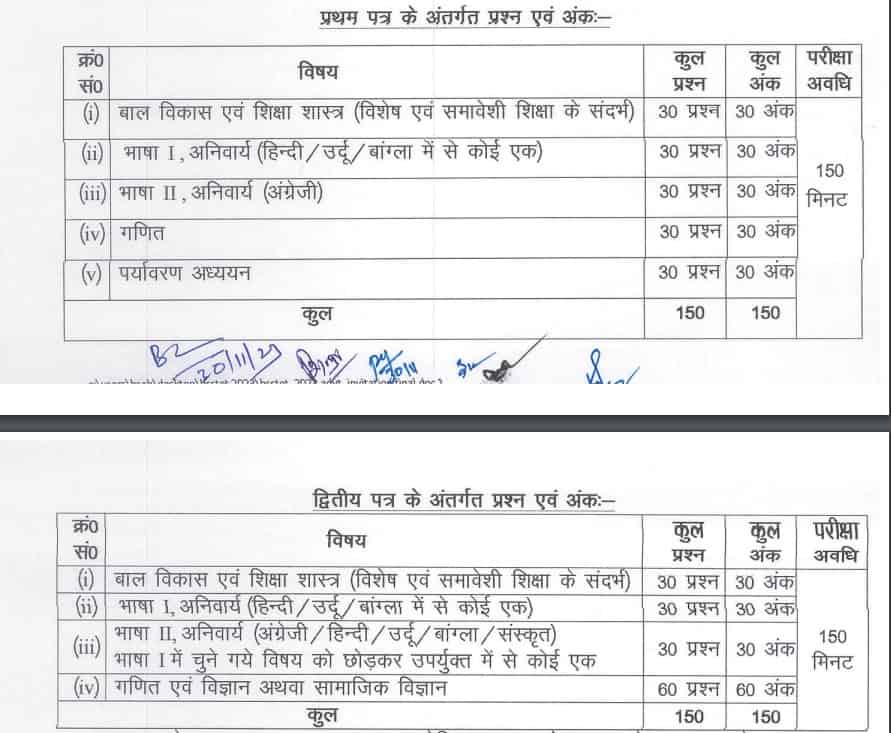 प्रथम पत्र के अंतर्गत प्रश्न एवं अंकः–
क्रं० सं० विषय कुल प्रश्न कुल अंक परीक्षा अवधि
(i) बाल विकास एवं शिक्षा शास्त्र (विशेष एवं समावेशी शिक्षा के संदर्भ) 30 प्रश्न 30 अंक
(ii) भाषा I, अनिवार्य (हिन्दी/उर्दू/बांग्ला में से कोई एक) 30 प्रश्न 30 अंक
150 मिनट
(iii) भाषा II, अनिवार्य (अंग्रेजी) 30 प्रश्न 30 अंक
(iv) गणित 30 प्रश्न 30 अंक
(v) पर्यावरण अध्ययन 30 प्रश्न 30 अंक
कुल 150 150
20/11/23
द्वितीय पत्र के अंतर्गत प्रश्न एवं अंकः–
क्रं० सं० विषय कुल प्रश्न कुल अंक परीक्षा अवधि
(i) बाल विकास एवं शिक्षा शास्त्र (विशेष एवं समावेशी शिक्षा के संदर्भ) 30 प्रश्न 30 अंक
(ii) भाषा I, अनिवार्य (हिन्दी/उर्दू/बांग्ला में से कोई एक) 30 प्रश्न 30 अंक
(iii) भाषा II, अनिवार्य (अंग्रेजी/हिन्दी/उर्दू/बांग्ला/संस्कृत)
भाषा I में चुने गये विषय को छोड़कर उपर्युक्त में से कोई एक 30 प्रश्न 30 अंक
150 मिनट
(iv) गणित एवं विज्ञान अथवा सामाजिक विज्ञान 60 प्रश्न 60 अंक
कुल 150 150